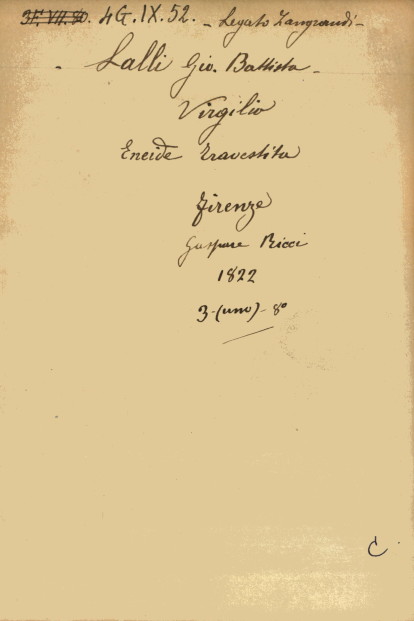 3F. VII. 50. 4G. IX. 52. - Legato Zangrandi -
- Lalli Gio. Battista -
Virgilio
Eneide Travestita
Firenze
Gaspare Ricci
1822
3-(uno)- 8º
C